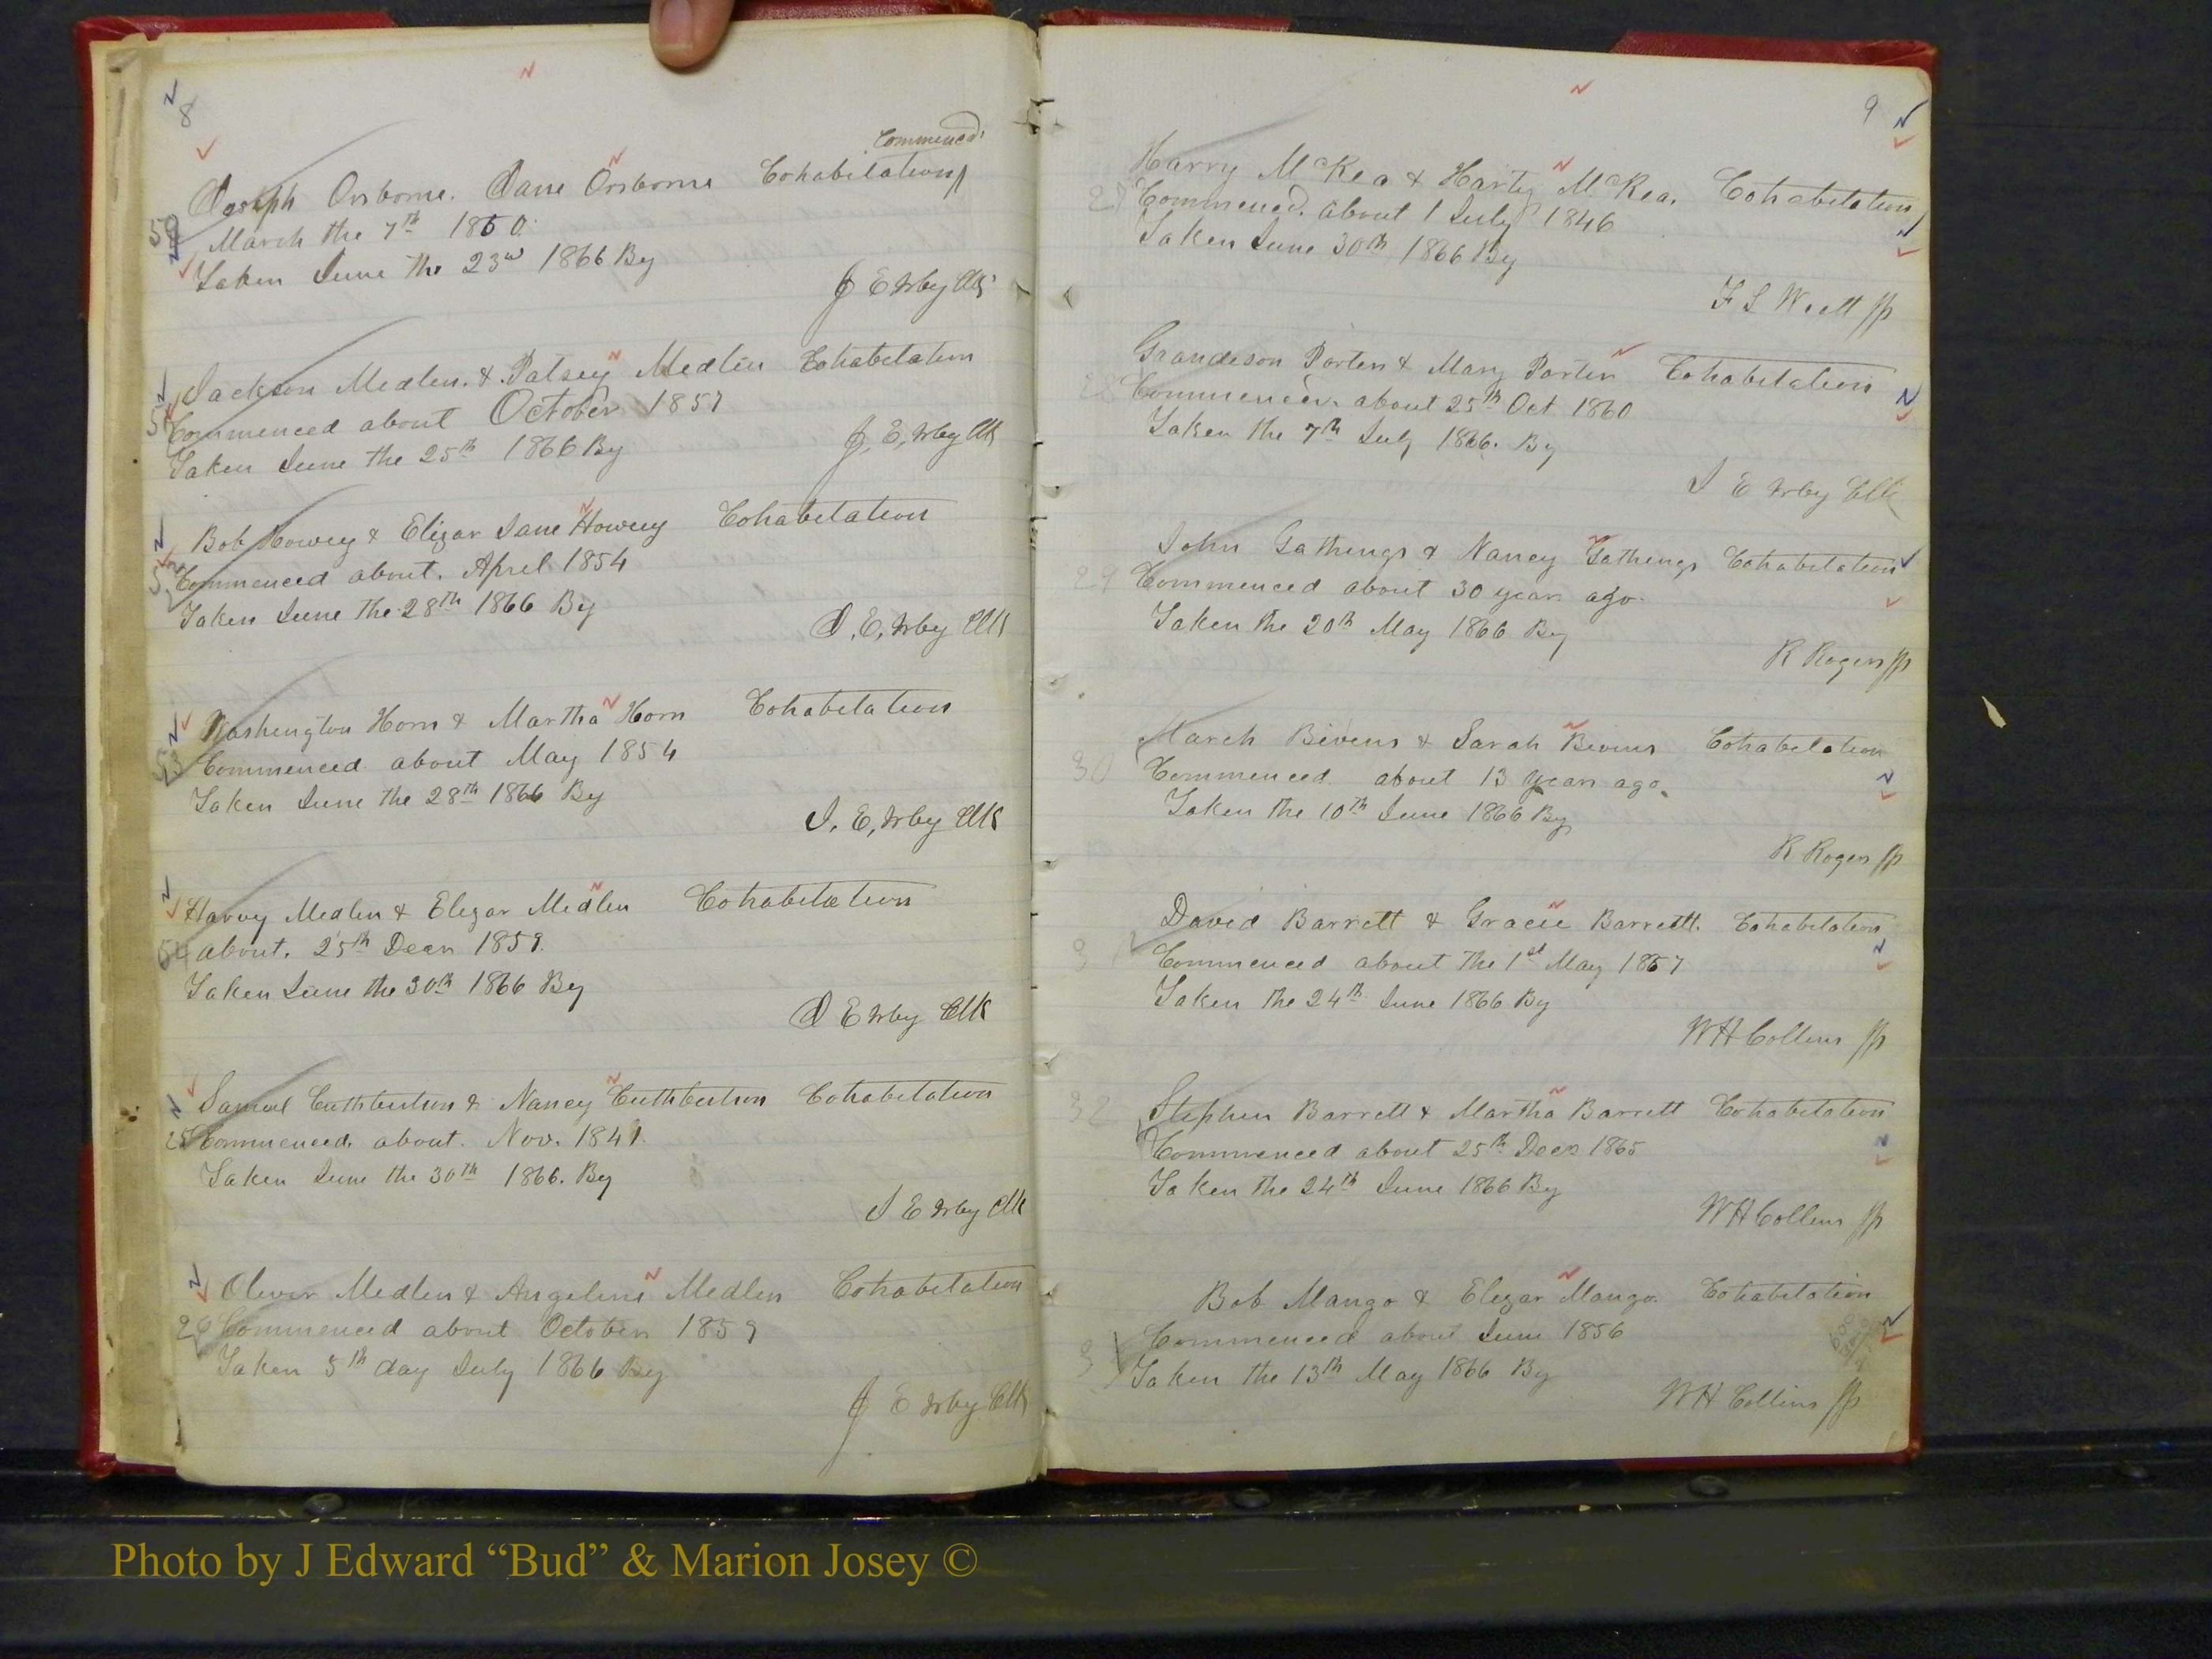 8
Commenced
Joseph Osborne. Jane Osborne Cohabitation
March the 7th 1860
Taken June the 23d 1866 By
J E Irby Clk
Jackson Medlin. & Patsey Medlin Cohabitation
Commenced about October 1857
Taken June the 25th 1866 By
J, E, Irby Clk
Bob Howey & Elizar Jane Howey Cohabitation
Commenced about. April 1854
Taken June the 28th 1866 By
J, E, Irby Clk
Washington Horn & Martha Horn Cohabitation
53 Commenced about May 1854
Taken June the 28th 1866 By
J, E, Irby Clk
Harvy Medlin & Elezar Medlin Cohabitation
54 about. 25th Decr 1859.
Taken June the 30th 1866 By
J E Irby Clk
Samuel Cuthbertson & Nancy Cuthbertson Cohabitation
Commenced. about. Nov. 1841.
Taken June the 30th 1866. By
J E Irby Clk
Oliver Medlin & Angeline Medlin Cohabitation
Commenced about October 1859
Taken 5th day July 1866 By
J E Irby Clk
9
Harry McRea & Harty McRea. Cohabitation
Commenced. about 1 July 1846
Taken June 30th 1866 By
Jp
Grandison Porter & Mary Porter Cohabitation
28 Commenced. about 25th Oct 1860
Taken the 7th July 1866. By
J E Irby Clk
John Gathings & Nancy Gathings Cohabitation
29 Commenced about 30 year ago.
Taken the 20th May 1866 By
R Rogers Jp
March Bivens & Sarah Bivens Cohabitation
30 Commenced about 13 years ago.
Taken the 10th June 1866 By
R Rogers Jp
David Barrett & Gracie Barrett. Cohabitation
Commenced about the 1st May 1857
Taken the 24th June 1866 By
W H Collins Jp
32 Stephen Barrett & Martha Barrett Cohabitation
Commenced about 25th Decr 1865
Taken the 24th June 1866 By
W H Collins Jp
Bob Mango & Elezar Mango. Cohabitation
Commenced about June 1856
Taken the 13th May 1866 By
W H Collins Jp
Photo by J Edward “Bud” & Marion Josey ©